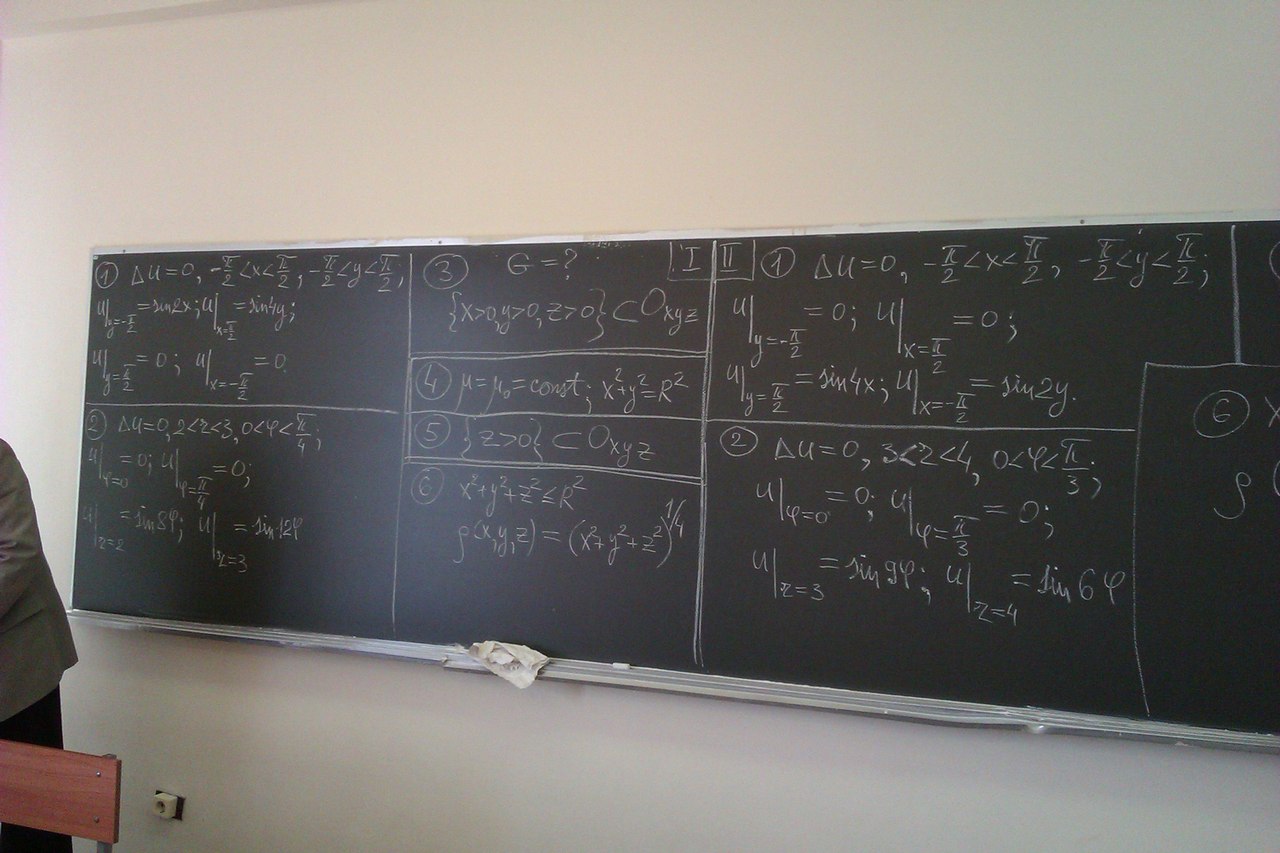 ① Δu=0, -π/2<x<π/2, -π/2<y<π/2;
u|y=-π/2 =sin2x; u|x=π/2 =sin4y;
u|y=π/2 =0; u|x=-π/2 =0.
② Δu=0, 2<r<3, 0<φ<π/4;
u|φ=0 =0; u|φ=π/4 =0;
u|r=2 =sin8φ; u|r=3 =sin12φ
③ G=? I
{x>0,y>0,z>0}⊂Oxyz
④ μ=μ₀=const; x²+y²=R²
⑤ {z>0}⊂Oxyz
⑥ x²+y²+z²≤R²
ρ(x,y,z)=(x²+y²+z²)^1/4
II ① Δu=0, -π/2<x<π/2, -π/2<y<π/2;
u|y=-π/2 =0; u|x=π/2 =0;
u|y=π/2 =sin4x; u|x=-π/2 =sin2y.
② Δu=0, 3<r<4, 0<φ<π/3;
u|φ=0 =0; u|φ=π/3 =0;
u|r=3 =sin9φ; u|r=4 =sin6φ
⑥ x
ρ(